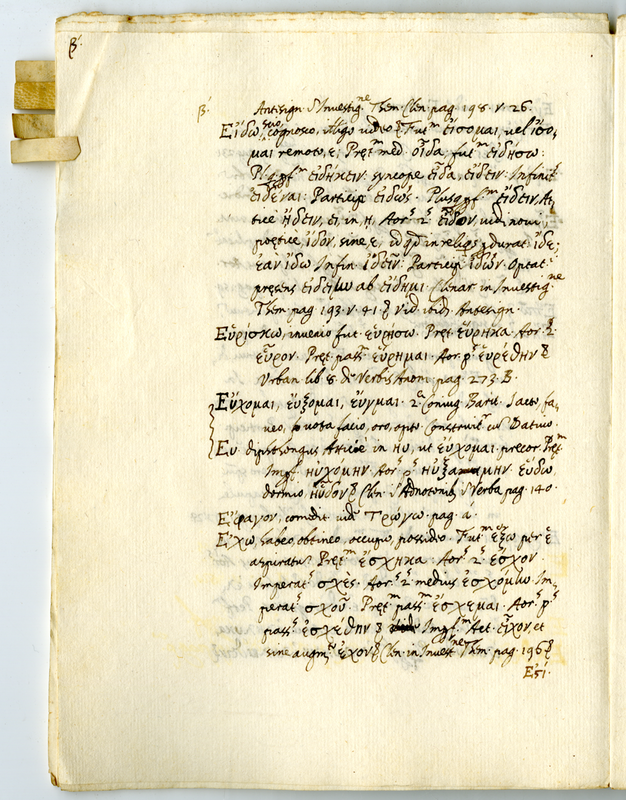 β'
β' Antesign. & Investig.ne Them. Clen. pag. 198. v. 26.
Εἴδω, scio, cognosco, video Fut.m εἴσομαι, vel ἴσο-
μαι remoto, ε, Pręt.m med. οἶδα, fut.m εἰδήσω:
Plusqpf.m εἰδήκειν. syncope εἶδα, εἴδειν. Infinit.
εἰδέναι: Particip. εἰδώς. Plusqpf.m εἴδειν, At-
tice ᾔδειν, ει, in, η, Aor.s 2.s εἶδον, vidi, novi,
poetice ἴδον, sine, ε, id qd in reliqs durat: ἴδε;
ἐὰν ἴδω Infin. ἰδεῖν: Particip. ἰδών. Optat.
pręsens εἰδείην ab εἴδημι. Clenar. in Investig.ne
Them. pag. 193. v. 41. & vid. ibid. Antesign.
Εὑρίσκω, invenio fut. εὑρήσω. Pręt. εὕρηκα. Aor. 2.
εὗρον. Pręt. pass. εὕρημαι. Aor. p.s εὑρέθην &
Urban. lib. 8. de Verbis Anom. pag. 273. B.
Εὔχομαι, εὔξομαι, εὖγμαι. 2.a Coniug. Barit. Iacto, fa-
veo, vota facio, oro, opto. Construit.r cū Dativo.
Ευ diphthongus Atticè in ηυ, ut εὔχομαι precor. Pręt.m
Impf. ηὐχόμην. Aor.s p.s ηὐξάμην. εὕδω,
dormio, ηὗδον & Clen. & Adnotonib. & Verba pag. 140.
Ἔφαγον, comedi. vid. Τρώγω. pag. a.
Ἔχω, habeo, obtineo, occupo, possideo. Fut.m ἕξω per ε
aspiratur. Pręt.m ἔσχηκα. Aor.s 2.s ἔσχον.
Imperat. σχὲς. Aor.s 2. medius ἐσχόμην Im-
perat. σχοῦ. Pręt.m pass.m ἔσχημαι. Aor. p.s
pass.s ἐσχέθην & Impf.m Act. εἶχον, et
sine augm.to ἔχον & Clen. in Invest.ne Them. pag. 196 &
Ἐστ.